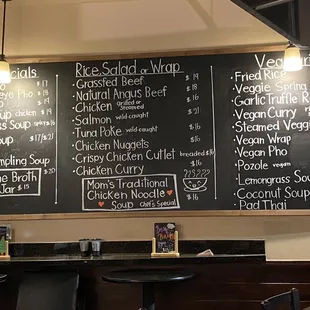 cials
eyo
Pho
$17
Soup
Soup
$17/21
mpling Soup
ne Broth
Jar $15
Rice, Salad or Wrap
Grassfed Beef $19
Natural Angus Beef
Chicken Grilled or Steamed
Salmon wild caught $21
Tuna Poke wild caught $16
Chicken Nuggets $16
Crispy Chicken Cutlet breaded $16
Chicken Curry
Mom's Traditional
Chicken Noodle
Soup Chef's Special $16
Vegetari
Fried Rice
Veggie Spring
Garlic Truffle R
Vegan Curry
Steamed Veggi
Vegan Wrap
Vegan Pho
Pozole
Lemongrass Soup
Coconut Soup
Pad Thai